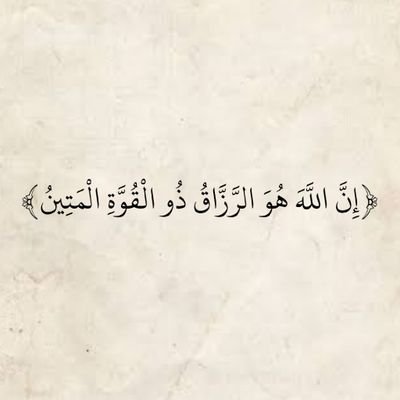 ﴿إِنَّ اللَّهَ هُوَ الرَّزَّاقُ ذُو الْقُوَّةِ الْمَتِينُ﴾